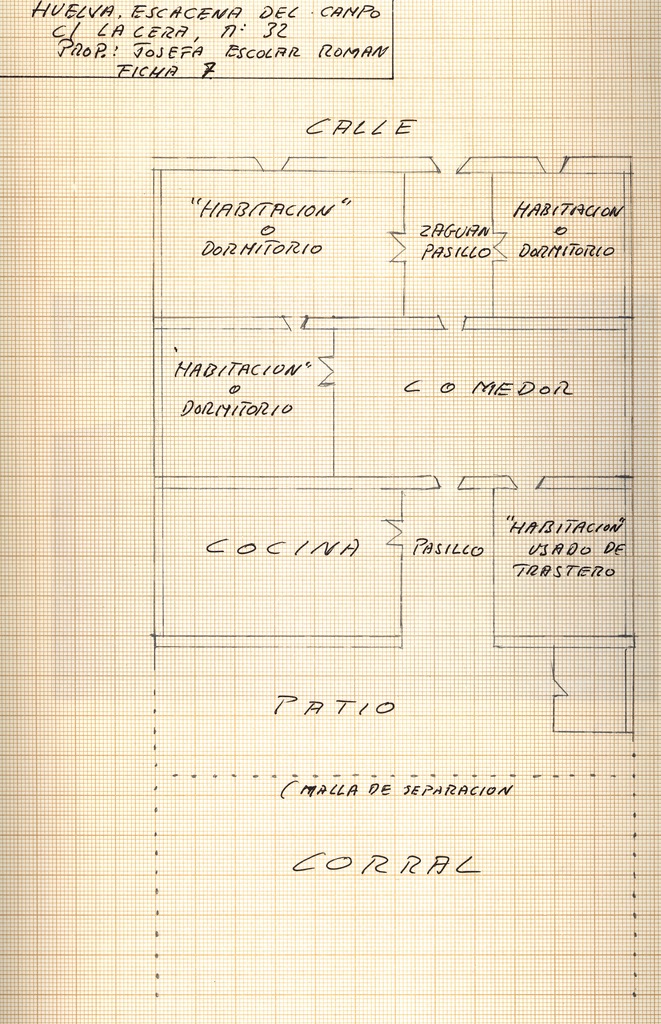 HUELVA. ESCACENA DEL CAMPO
C/ LA CERA, Nº 32
PROP.: JOSEFA ESCOLAR ROMAN
FICHA 7
CALLE
"HABITACION"
O
DORMITORIO
ZAGUAN
PASILLO
HABITACION
O
DORMITORIO
"HABITACION"
O
DORMITORIO
COMEDOR
COCINA
PASILLO
"HABITACION"
USADO DE
TRASTERO
PATIO
(MALLA DE SEPARACION
CORRAL